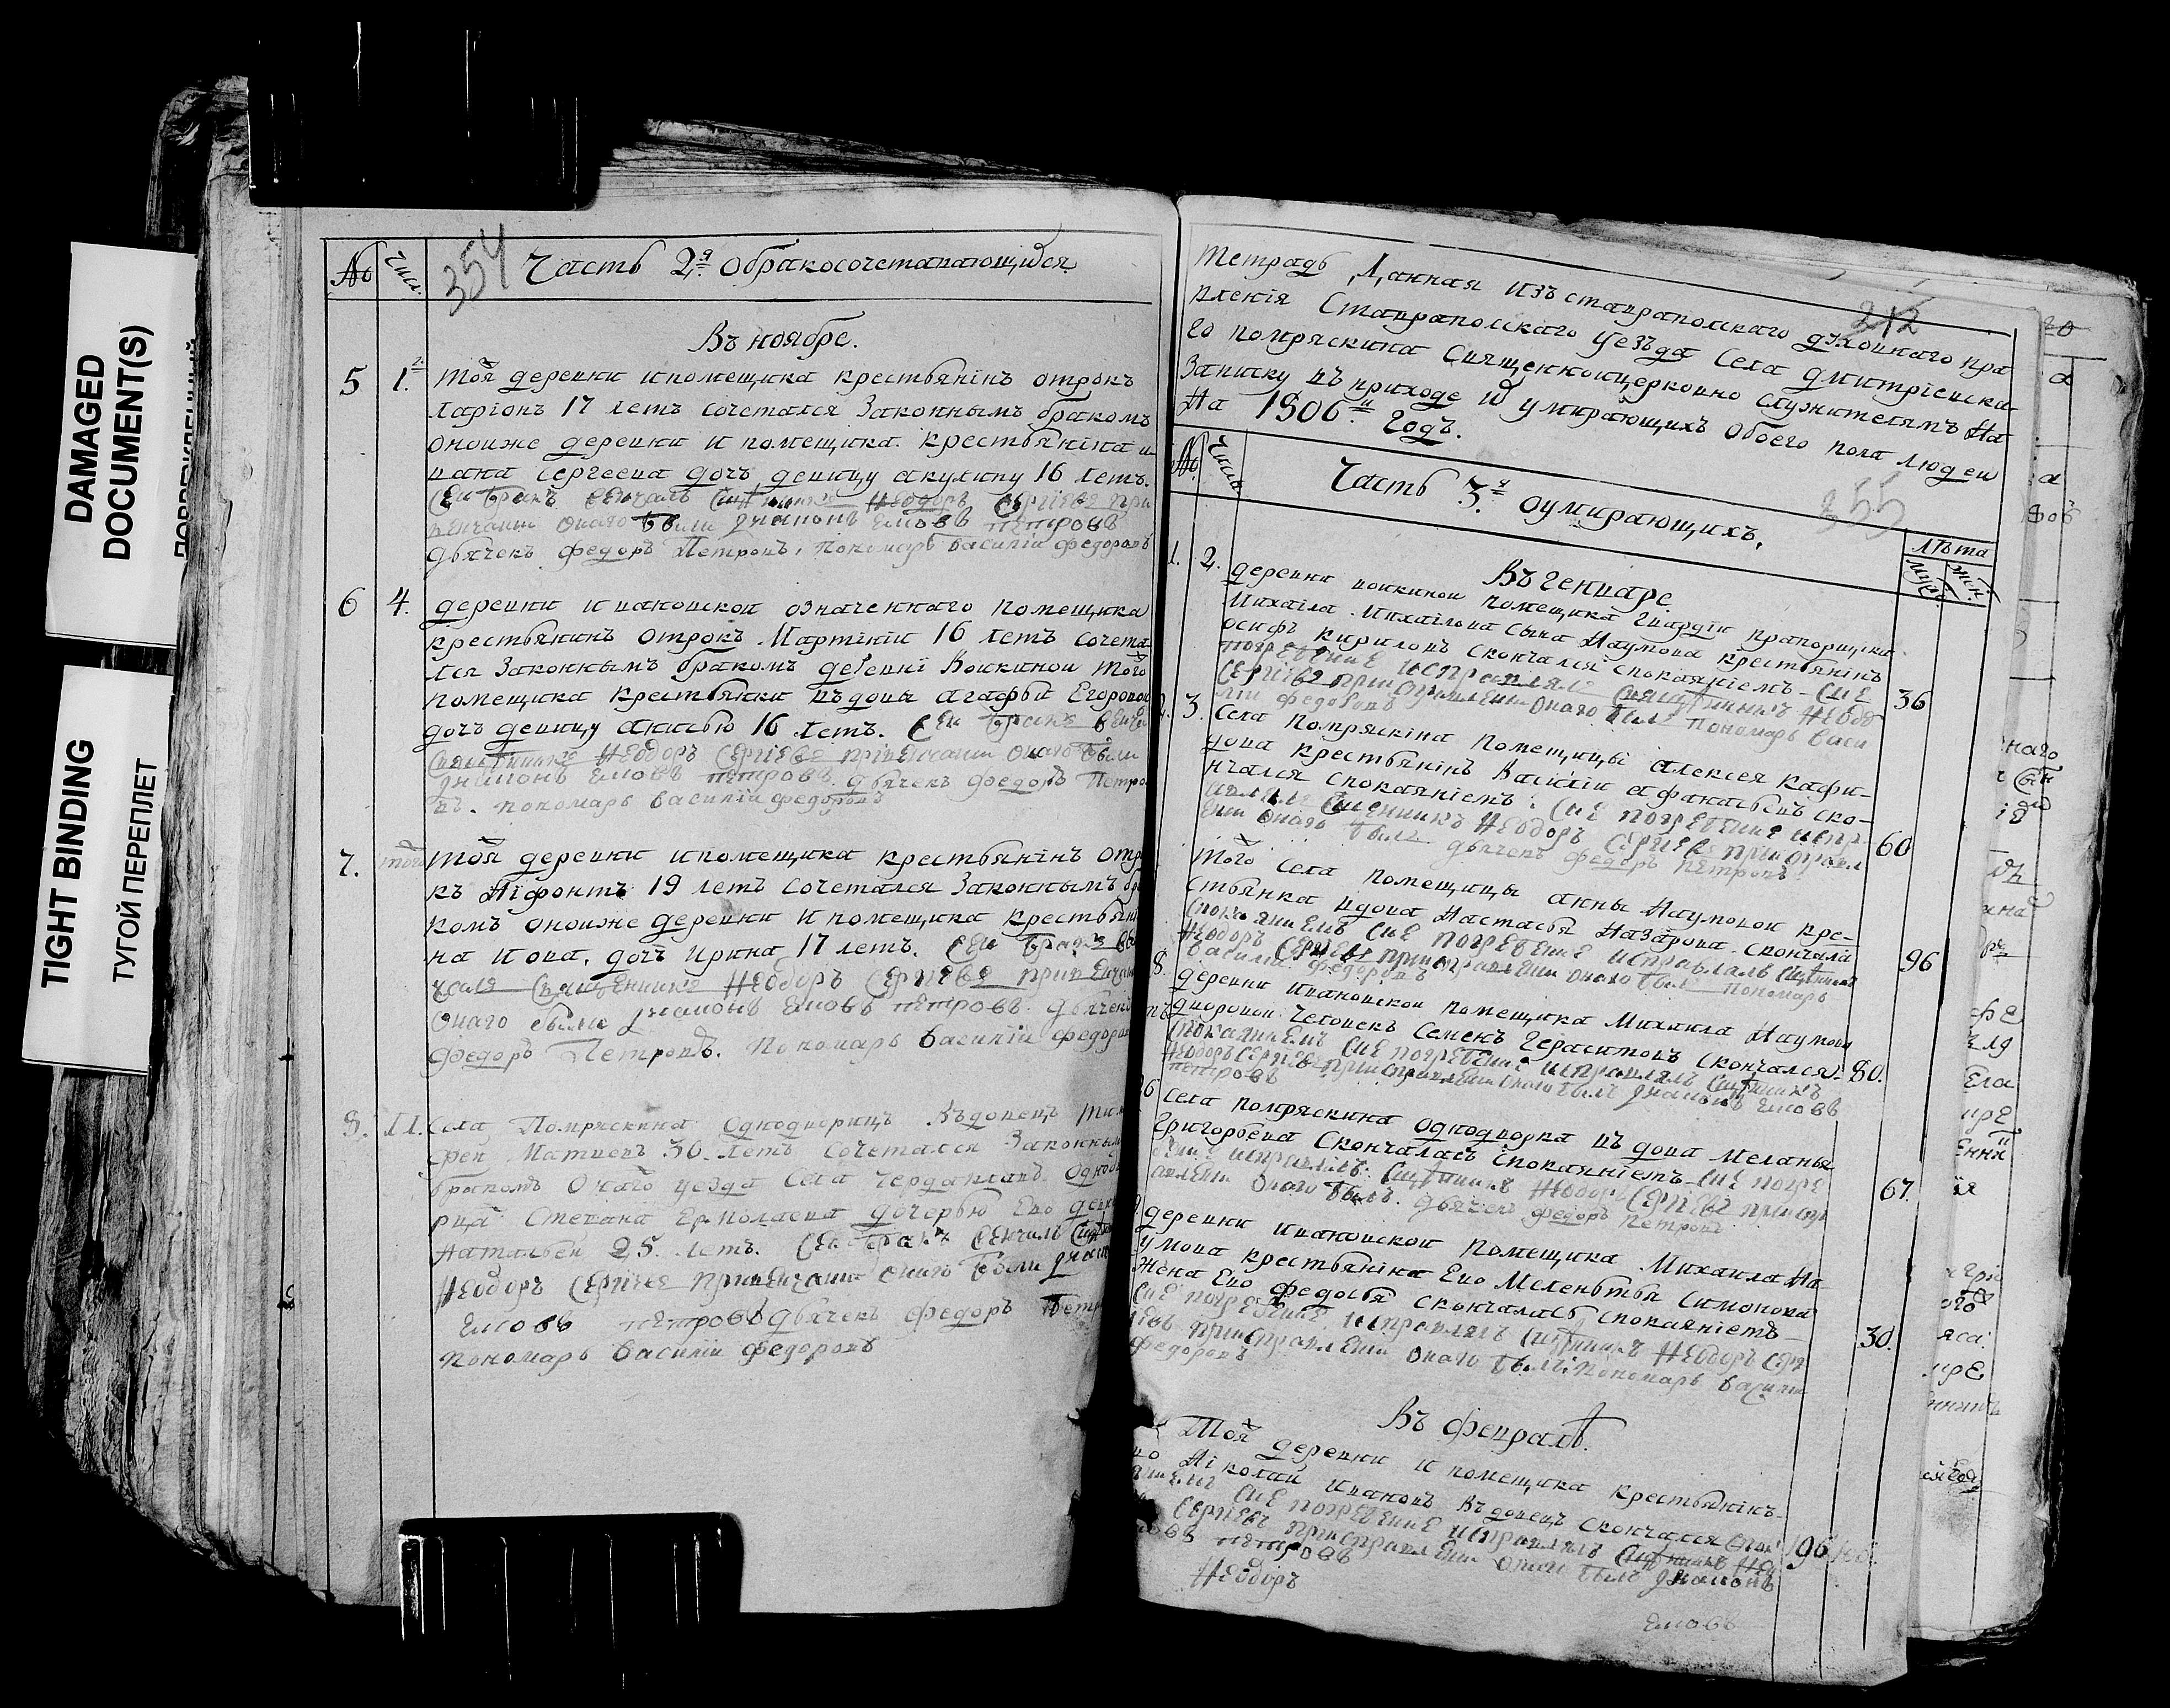 DAMAGED
DOCUMENT(S)
TIGHT BINDING
ТУГОЙ ПЕРЕПЛЕТ
№ Числ. 354 Часть 2я Обракосочетавающихся
Въ ноябре.
5 1. тоя деревни ипомещика крестьянінъ отрокъ
Ларіонъ 17 летъ сочетался Законнымъ бракомъ
оноиже деревни и помещика крестьяніна и
вана Сергеева дочъ девицу акулину 16 летъ.
Сеи бракъ венчалъ Священникъ Ѳеодоръ Сергіевъ при
венчании онаго были диаконъ Емовъ петровъ
дьячекъ федоръ Петровъ, пономарь василіи федоровъ
6 4. деревни ивановскои означеннаго помещика
крестьянинъ отрокъ Мартініи 16 летъ сочета
лся Законнымъ бракомъ деревні Воикинои того
помещика крестьянки вдовы агафьи Егоровои
дочъ девицу анисью 16 летъ. Сеи бракъ венча
Священникъ Ѳеодоръ Сергіевъ при венчании онаго были
диаконъ Емовъ петровъ дьячекъ федоръ Петро
въ. пономарь василіи федоровъ
7. тоя деревни ипомещика крестьянінъ отро
къ Ніфонтъ 19 летъ сочетался Законнымъ бра
комъ оноиже деревни и помещика крестьяни
на иова, дочъ ирина 17 летъ. Сеи бракъ вен
чалъ Священникъ Ѳеодоръ Сергіевъ при венчани
онаго были диаконъ Емовъ петровъ дьячекъ
федоръ Петровъ. Пономарь василіи федоров
8. 11. Села Помряскина Однодворецъ Вдовецъ тим
фей Матвеевъ 30. летъ сочетался Законным
бракомъ онаго уезда села Чердакловъ Однод
рца Степана Ермолаева дочерью Ево деви
Натальеи 25. летъ. Сеи бракъ венчалъ
Ѳеодоръ Сергіевъ при венчании онаго были диак
Емовъ петровъ дьячекъ федоръ Петр
пономарь василіи федоровъ
212
Тетрадь Данная изъ ставрапольскаго духовнаго пра
вленія Ставрапольскаго уезъда Села дмитріевска
го помряскина Священноицерковно служителямъ На
Записку въ приходе и умирающихъ обоего пола людеи
На 1806й годъ.
№ Числ. Часть 3я оумирающихъ. 255 Лѣта Муж. Жен.
Въ генваре.
1. 2. деревни воикинои помещика Гвардіи прапорщика
Михаила Михаилова сына Наумова крестьянінъ
осифъ кириловъ скончался спокаяніемъ Сие
погребение исправлялъ Священникъ Ѳеодо
Сергіевъ приисправлении онаго былъ пономарь васи
лии федоровъ 36
3. Села Помряскина помещицы алексея кафи-
дова крестьянінъ Василіи афанасьевъ ско-
нчался спокаяніемъ. Сие погребение испр-
авлялъ Священникъ Ѳеодоръ Сергіевъ приисправл
ении онаго былъ дьячекъ федоръ петровъ 60
того села помещицы анны Наумовои кре-
стьянка вдова Настасья Назарова скончала
Спокаяниемъ Сие погребение исправлялъ
Ѳеодоръ Сергіевъ приисправлении онаго былъ пономарь
василии федоровъ 96
8. деревни ивановскои помещика Михаила Наумова
дворовои человекъ Семенъ Герасимовъ скончался 80.
Спокаяниемъ Сие погребение исправлялъ
Ѳеодоръ Сергіевъ приисправлении онаго былъ диаконъ Емовъ
петровъ
6 Села помряскина однодворка вдова Меланья
Григорьева скончалась спокаяніемъ Сие погре
бение исправлялъ Ѳеодоръ Сергіевъ прииспр
авлении онаго былъ. дьячекъ федоръ петровъ 67.
деревни ивановскои помещика Михаила На-
умова крестьяніна Ево Мелентья Симонова
жена Ево федосья скончалась спокаяніемъ
Сие погребение исправлялъ Ѳеодоръ Серг
іевъ приисправлении онаго былъ: пономарь васили
федоровъ 30.
Въ февралѣ.
Тоя деревни и помещика крестьянінъ-
Николаи ивановъ вдовецъ скончался
Сие погребение исправлялъ 96
Сергіевъ приисправлении онаго былъ диаконъ
петровъ
Ѳеодоръ
Емовъ